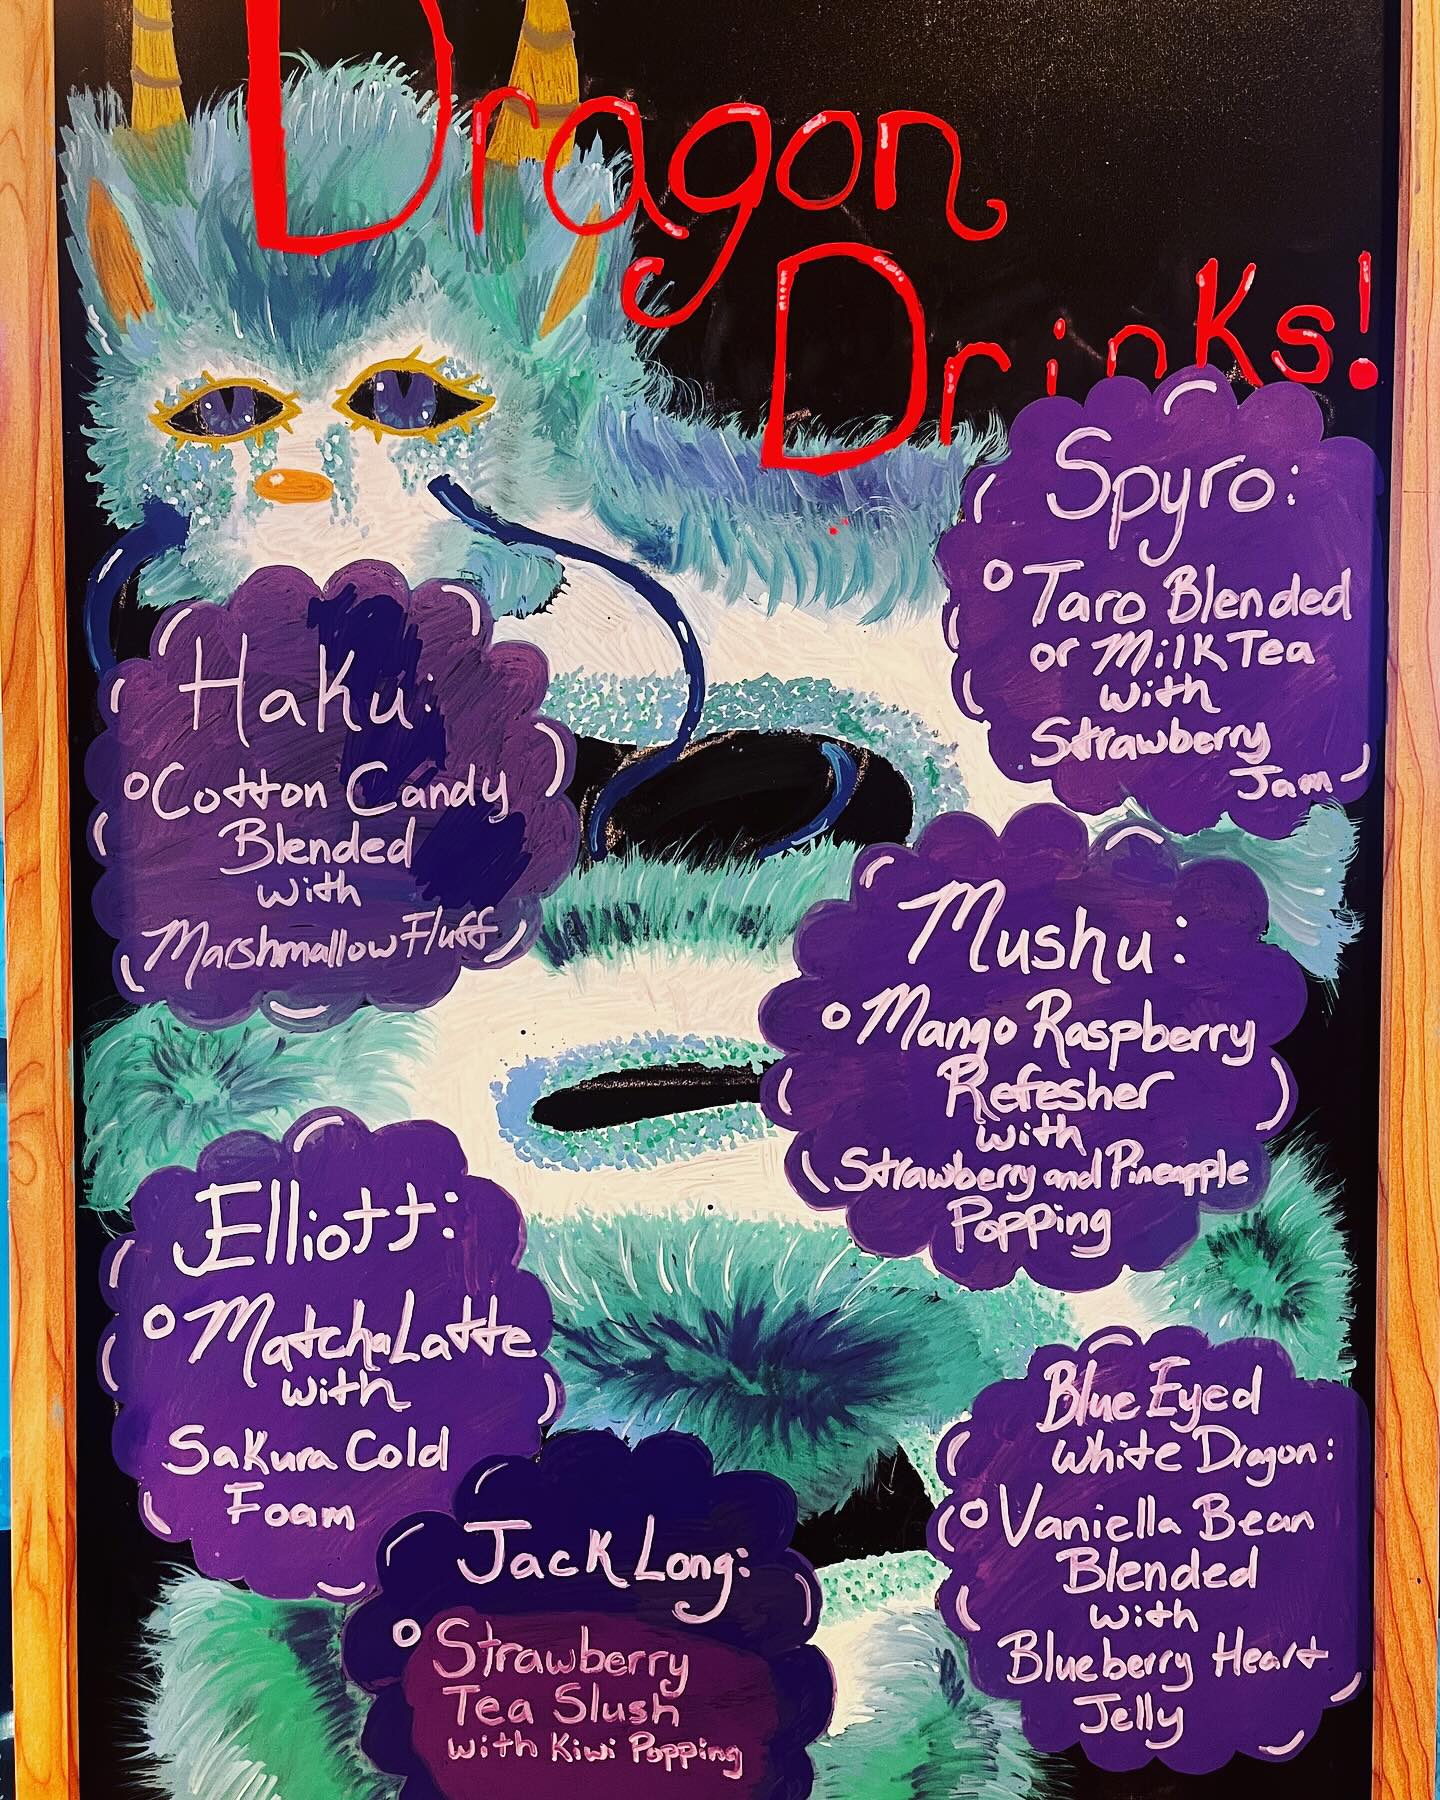 Dragon
Drinks!
Spyro:
Taro Blended
or Milk Tea
with
Strawberry
Jam
Haku:
Cotton Candy
Blended
with
Marshmallow Fluff
Mushu:
Mango Raspberry
Refesher
with
Strawberry and Pineapple
Popping
Elliott:
Matcha Latte
with
Sakura Cold
Foam
Blue Eyed
White Dragon:
Vaniella Bean
Blended
with
Blueberry Heart
Jelly
Jack Long:
Strawberry
Tea Slush
with Kiwi Popping